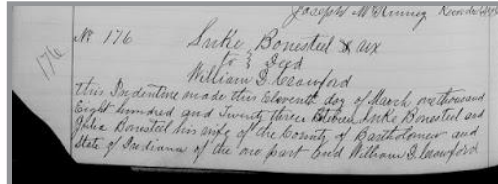 Joseph McKinney Recorder
No 176 Luke Bonesteel & ux
176
to } Deed
William D. Crawford
This Indentine made this Eleventh day of March one thousand
Eight hundred and Twenty three Between Luke Bonesteel and
Julia Bonesteel his wife of the County of Bartholomew and
State of Indiana of the one part and William D. Crawford